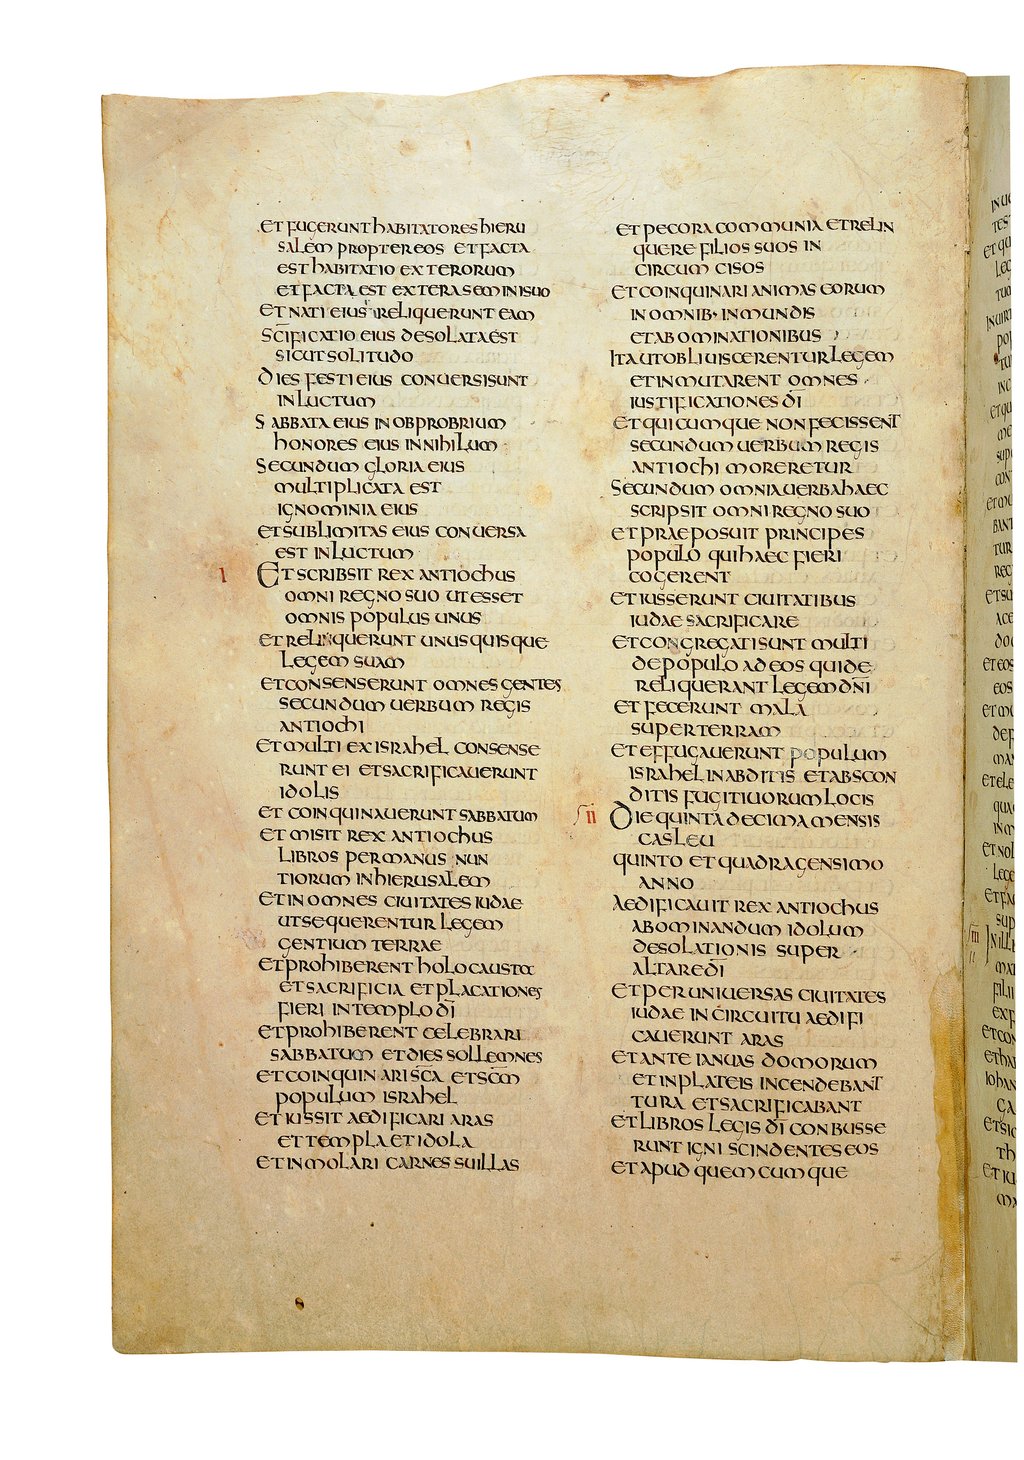 ET FUGERUNT HABITATORES HIERU
SALEM PROPTER EOS ET FACTA
EST HABITATIO EXTERORUM
ET FACTA EST EXTERA SEMINI SUO
ET NATI EIUS RELIQUERUNT EAM
SCIFICATIO EIUS DESOLATA EST
SICUT SOLITUDO
DIES FESTI EIUS CONUERSI SUNT
IN LUCTUM
SABBATA EIUS IN OBPROBRIUM
HONORES EIUS IN NIHILUM
SECUNDUM GLORIA EIUS
MULTIPLICATA EST
IGNOMINIA EIUS
ET SUBLIMITAS EIUS CONUERSA
EST IN LUCTUM
I ET SCRIBSIT REX ANTIOCHUS
OMNI REGNO SUO UT ESSET
OMNIS POPULUS UNUS
ET RELINQUERUNT UNUSQUISQUE
LEGEM SUAM
ET CONSENSERUNT OMNES GENTES
SECUNDUM UERBUM REGIS
ANTIOCHI
ET MULTI EX ISRAHEL CONSENSE
RUNT EI ET SACRIFICAUERUNT
IDOLIS
ET COINQUINAUERUNT SABBATUM
ET MISIT REX ANTIOCHUS
LIBROS PER MANUS NUN
TIORUM IN HIERUSALEM
ET IN OMNES CIUITATES IUDAE
UT SEQUERENTUR LEGEM
GENTIUM TERRAE
ET PROHIBERENT HOLOCAUSTA
ET SACRIFICIA ET PLACATIONES
FIERI IN TEMPLO DĪ
ET PROHIBERENT CELEBRARI
SABBATUM ET DIES SOLLEMNES
ET COINQUINARI SC̄A ET SC̄M
POPULUM ISRAHEL
ET IUSSIT AEDIFICARI ARAS
ET TEMPLA ET IDOLA
ET INMOLARI CARNES SUILLAS
ET PECORA COMMUNIA ET RELIN
QUERE FILIOS SUOS IN
CIRCUMCISOS
ET COINQUINARI ANIMAS EORUM
IN OMNIB· INMUNDIS
ET ABOMINATIONIBUS
ITA UT OBLIUISCERENTUR LEGEM
ET INMUTARENT OMNES
IUSTIFICATIONES DĪ
ET QUICUMQUE NON FECISSENT
SECUNDUM UERBUM REGIS
ANTIOCHI MORERETUR
SECUNDUM OMNIA UERBA HAEC
SCRIPSIT OMNI REGNO SUO
ET PRAEPOSUIT PRINCIPES
POPULO QUI HAEC FIERI
COGERENT
ET IUSSERUNT CIUITATIBUS
IUDAE SACRIFICARE
ET CONGREGATI SUNT MULTI
DE POPULO AD EOS QUI DE
RELIQUERANT LEGEM DN̄I
ET FECERUNT MALA
SUPER TERRAM
ET EFFUGAUERUNT POPULUM
ISRAHEL IN ABDITIS ET ABSCON
DITIS FUGITIUORUM LOCIS
II DIE QUINTA DECIMA MENSIS
CASLEU
QUINTO ET QUADRAGENSIMO
ANNO
AEDIFICAUIT REX ANTIOCHUS
ABOMINANDUM IDOLUM
DESOLATIONIS SUPER
ALTARE DĪ
ET PER UNIUERSAS CIUITATES
IUDAE IN CIRCUITU AEDIFI
CAUERUNT ARAS
ET ANTE IANUAS DOMORUM
ET IN PLATEIS INCENDEBANT
TURA ET SACRIFICABANT
ET LIBROS LEGIS DĪ CONBUSSE
RUNT IGNI SCINDENTES EOS
ET APUD QUEMCUMQUE